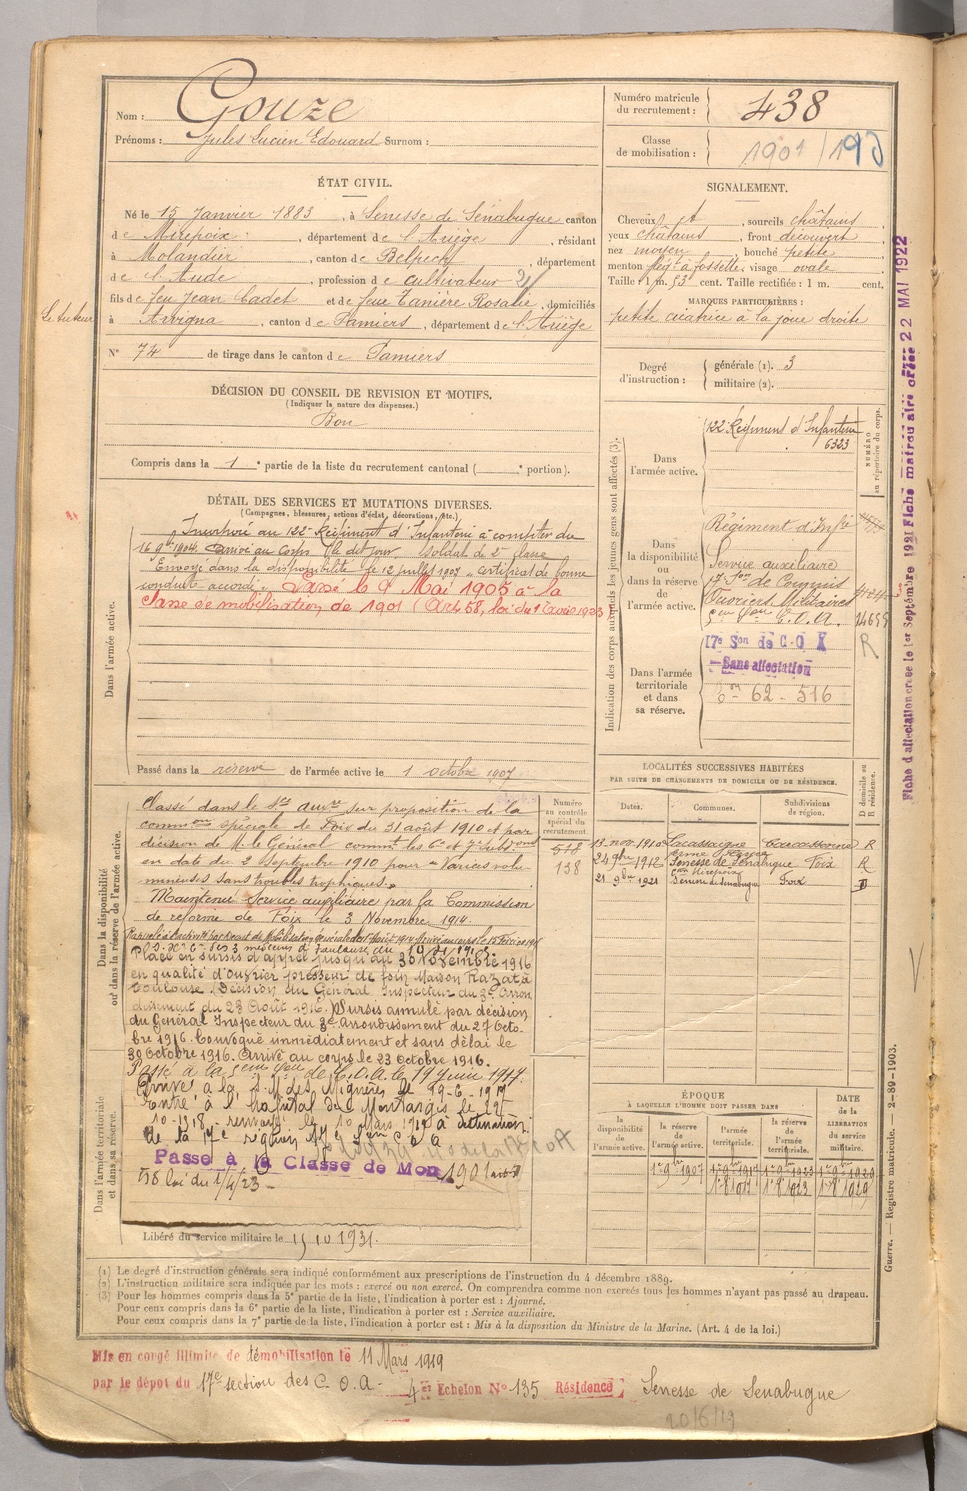 Nom : Gouze
Prénoms : Jules Lucien Edouard Surnom :
Numéro matricule du recrutement : 438
Classe de mobilisation : 1901
ÉTAT CIVIL.
Né le 15 Janvier 1883, à Senesse de Senabugue canton
de Mirepoix, département de l'Ariège, résidant
à Molandier, canton de Belpech, département
de l'Aude, profession de cultivateur
fils de feu Jean Cadet et de feue Tanière Rosalie, domiciliés
Le tuteur
à Arvigna, canton de Pamiers, département de l'Ariège
N° 74 de tirage dans le canton de Pamiers
SIGNALEMENT.
Cheveux et, sourcils châtains
yeux châtains, front découvert
nez moyen, bouche petite
menton à fossette, visage ovale
Taille : 1 m. 53 cent. Taille rectifiée : 1 m. cent,
MARQUES PARTICULIÈRES :
petite cicatrice à la joue droite
Degré d'instruction : générale (1). 3
militaire (2).
DÉCISION DU CONSEIL DE REVISION ET MOTIFS.
(Indiquer la nature des dispenses.)
Bon
Compris dans la 1e partie de la liste du recrutement cantonal ( e portion).
DÉTAIL DES SERVICES ET MUTATIONS DIVERSES.
(Campagnes, blessures, actions d'éclat, décorations, etc.)
Dans l'armée active.
Incorporé au 122e Régiment d'Infanterie à compter du
16 9bre 1904. Arrivé au Corps le dit jour, soldat de 2e classe
Envoyé dans la disponibilité le 12 juillet 1907. Certificat de bonne
conduite accordé. Passé le 9 Mai 1905 à la
Classe de mobilisation de 1901 (Art 58, loi du 1 avril 1923
Passé dans la réserve de l'armée active le 1 octobre 1907
Indication des corps auxquels les jeunes gens sont affectés (3).
NUMÉRO au répertoire du corps.
Dans l'armée active.
122e Régiment d'Infanterie
6323
Dans la disponibilité ou dans la réserve de l'armée active.
Régiment d'Infie
Service auxiliaire
17e Son de Commis
Ouvriers Militaires
C.O.A.
R
Dans l'armée territoriale et dans sa réserve.
17e Son de C.O.A
Sans affectation
62 - 516
Fiche d'affectation créée le 1er Septembre 1921 Fiche matricule créée 22 MAI 1922
Dans la disponibilité ou dans la réserve de l'armée active.
Classé dans le Sce auxre sur proposition de la
common spéciale de Foix du 31 août 1910 et par
décision de M. le Général commt les 6e et 7e subdons
en date du 2 Septembre 1910 pour « Varices volu
mineuses sans troubles trophiques. »
Maintenu service auxiliaire par la Commission
de réforme de Foix le 3 Novembre 1914.
Placé en sursis d'appel jusqu'au 30 1916
en qualité d'ouvrier presseur de foin Maison Razata
Toulouse. Décision du Général Inspecteur du 3e Arron
dissement du 28 Août 1916. Sursis annulé par décision
du Général Inspecteur du 3e arrondissement du 27 Octo-
bre 1916. Convoqué immédiatement et sans délai le
30 Octobre 1916. Arrivé au corps le 23 Octobre 1916.
Dans l'armée territoriale et dans sa réserve.
Passé à la Son de C.O.A. le 19 Juin 1917.
Arrivé à la des Mignères le 19-6-1917
Entré à l'hopital de Montargis le 22-
10-1918
Passé à la Classe de Mob 1901
58 loi du 1/4/23
Libéré du service militaire le 15 10 1931.
Numéro au contrôle spécial du recrutement.
518
138
LOCALITÉS SUCCESSIVES HABITÉES
PAR SUITE DE CHANGEMENTS DE DOMICILE OU DE RÉSIDENCE.
Dates. Communes. Subdivisions de région. D domicile ou R résidence.
13 nov 1910 Lacassaigne Carcassonne R
24 9bre 1912 Senesse de Senabugue Foix R
21 9bre 1921 Senesse de Senabugue Foix D
ÉPOQUE
À LAQUELLE L'HOMME DOIT PASSER DANS
la disponibilité de l'armée active. la réserve de l'armée active. l'armée territoriale. la réserve de l'armée territoriale. DATE de la LIBÉRATION du service militaire.
1er 9bre 1907
Guerre. — Registre matricule. — 2-89-1903.
(1) Le degré d'instruction générale sera indiqué conformément aux prescriptions de l'instruction du 4 décembre 1889.
(2) L'instruction militaire sera indiquée par les mots : exercé ou non exercé. On comprendra comme non exercés tous les hommes n'ayant pas passé au drapeau.
(3) Pour les hommes compris dans la 5e partie de la liste, l'indication à porter est : Ajourné.
Pour ceux compris dans la 6e partie de la liste, l'indication à porter est : Service auxiliaire.
Pour ceux compris dans la 7e partie de la liste, l'indication à porter est : Mis à la disposition du Ministre de la Marine. (Art. 4 de la loi.)
Mis en congé illimité de démobilisation le 11 Mars 1919
par le dépôt du 17e section des C.O.A. 4er Echelon N° 135 Résidence Senesse de Senabugue
20/6/19